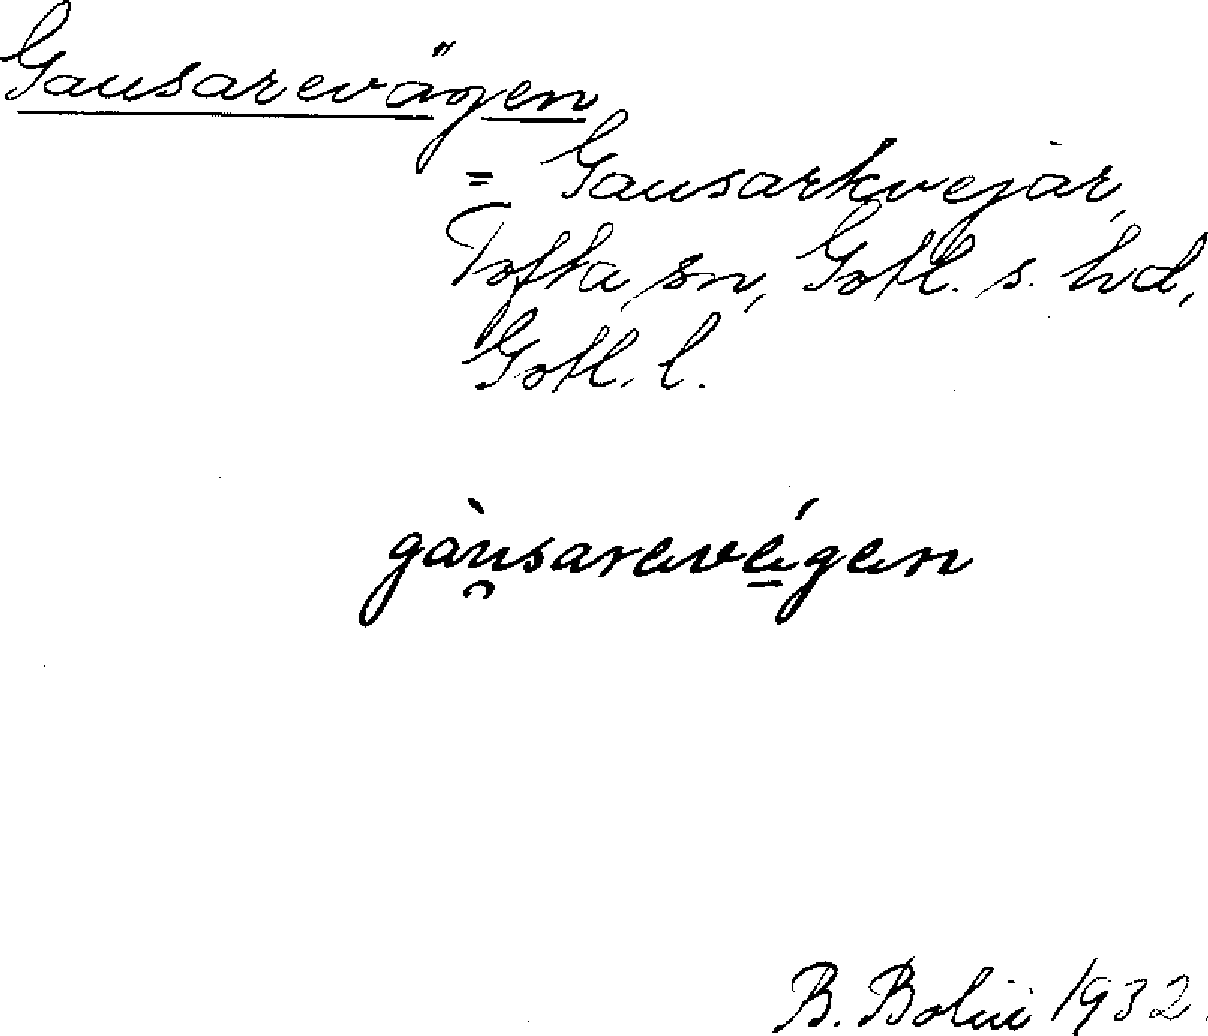 Gausarevägen
= Gausarkvejar,
Tofta sn, Gotl. s. hd,
Gotl. l.
gàu̯sarevé̠gen
B. Bolin 1932.